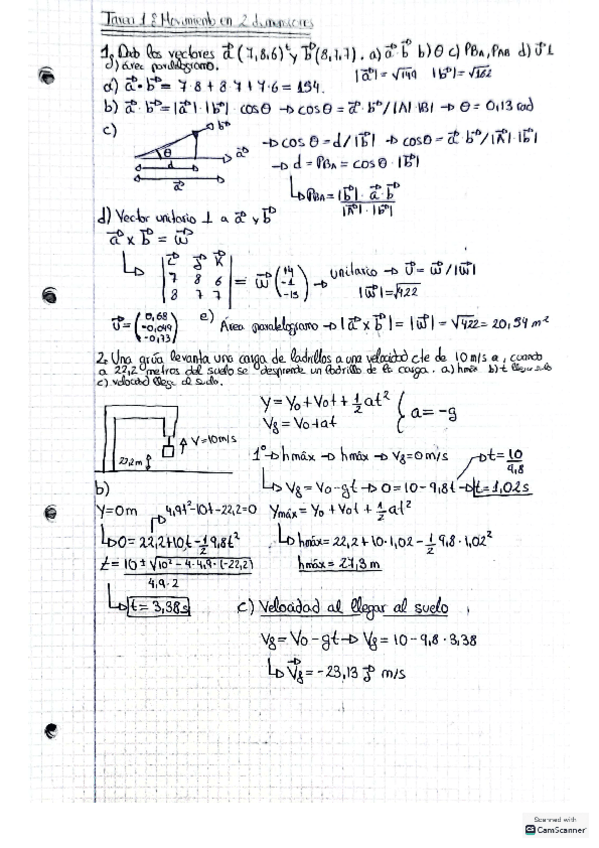 Tarea 1: Movimiento en 2 dimensiones
1. Dado los vectores a⃗(7,8,6)ᵗ y b⃗(8,7,7). a) a⃗·b⃗ b) θ c) PBA, PAB d) U⃗⊥
d) área paralelogramo. |a⃗|=√149 |b⃗|=√162
a) a⃗·b⃗ = 7·8+8·7+7·6 = 154.
b) a⃗·b⃗ = |a⃗|·|b⃗|·cosθ → cosθ = a⃗·b⃗/|A|·|B| → θ = 0,13 rad
c) b⃗ θ a⃗ d a⃗
→ cosθ = d/|b⃗| → cosθ = a⃗·b⃗/|A⃗|·|b⃗|
→ d = PBA = cosθ·|b⃗|
↳ PBA = |b⃗|·a⃗·b⃗ / |A⃗|·|b⃗|
d) Vector unitario ⊥ a a⃗ y b⃗
a⃗ x b⃗ = w⃗
↳ | i⃗ j⃗ k⃗ |
| 7 8 6 | = w⃗ (14 -1 -15) → unitario → U⃗ = w⃗/|w⃗|
| 8 7 7 | |w⃗| = √422
U⃗ = (0,68 -0,049 -0,73) e) Área paralelogramo → |a⃗ x b⃗| = |w⃗| = √422 = 20,54 m²
2. Una grúa levanta una carga de ladrillos a una velocidad cte de 10 m/s a, cuando
a 22,2 metros del suelo se desprende un ladrillo de la carga. a) hmáx b) t llegar suelo
c) velocidad llega al suelo.
Y = Y₀ + V₀t + 1/2 at²
Vf = V₀ + at { a = -g
V = 10 m/s
22,2m
1º → hmáx → hmáx → Vf = 0 m/s → t = 10/9,8
↳ Vf = V₀ - gt → 0 = 10 - 9,8t → t = 1,02s
b)
Y = 0m 4,9t² - 10t - 22,2 = 0
↳ 0 = 22,2 + 10t - 1/2 9,8t²
t = 10 ± √10² - 4·4,9·(-22,2) / 4,9·2
↳ t = 3,38s
Ymáx = Y₀ + V₀t + 1/2 at²
↳ hmáx = 22,2 + 10·1,02 - 1/2 9,8·1,02²
hmáx = 27,3 m
c) Velocidad al llegar al suelo
Vf = V₀ - gt → Vf = 10 - 9,8·3,38
↳ V⃗f = -23,13 j⃗ m/s
Scanned with
CS CamScanner